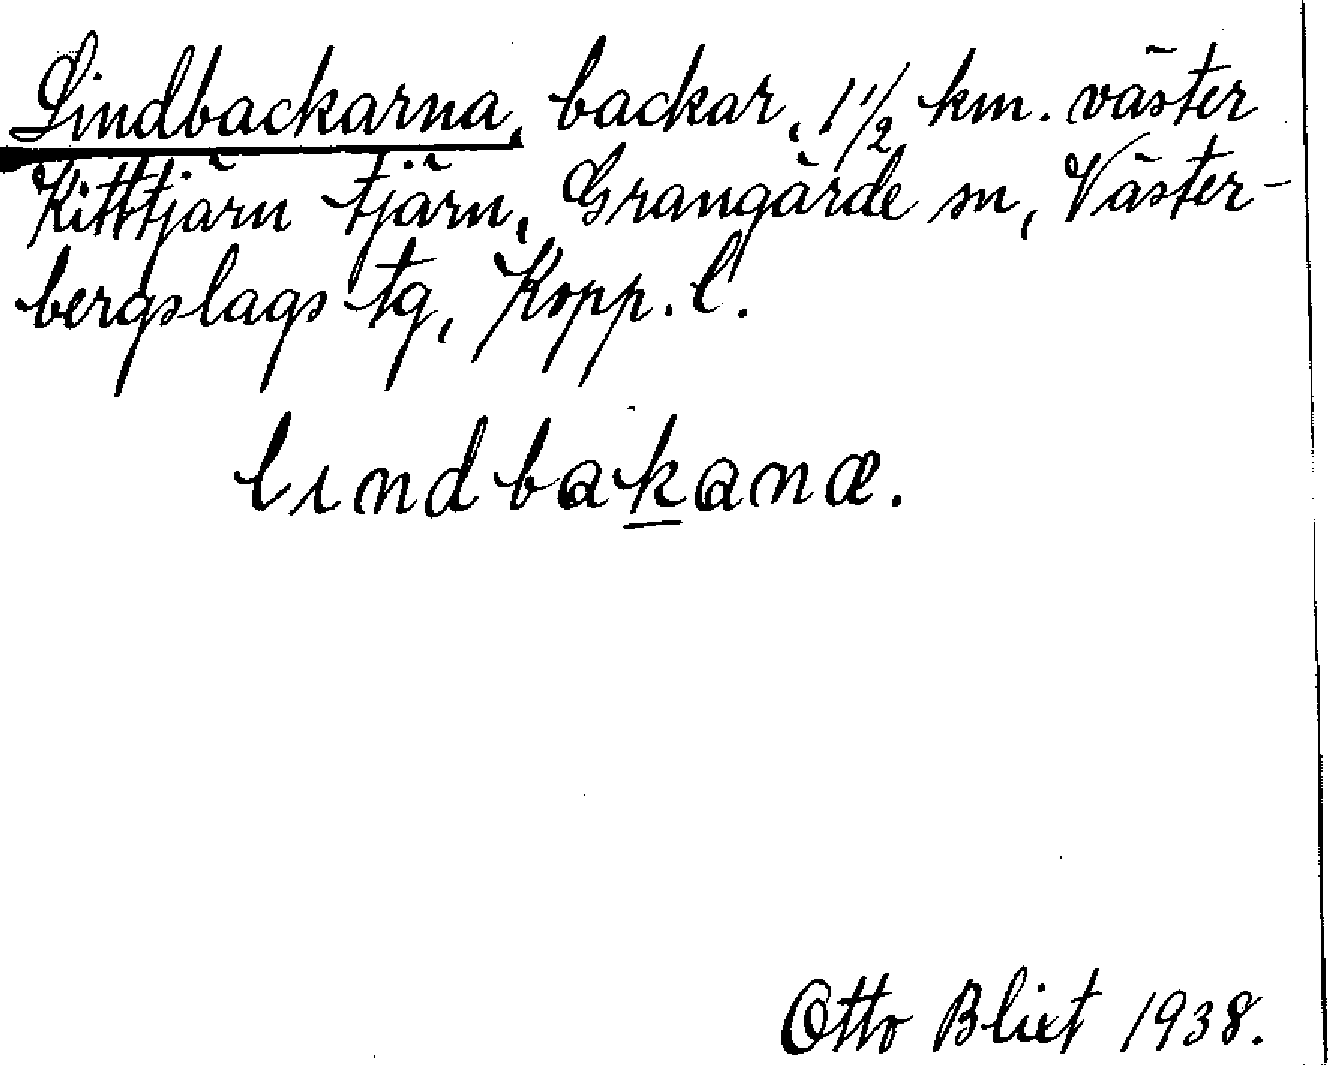 Lindbackarna, backar, 1 1/2 km. väster
Kitttjärn tjärn, Grangärde sn, Väster-
bergslags tg, Kopp. l.
lındbakanæ.
Otto Blixt 1938.